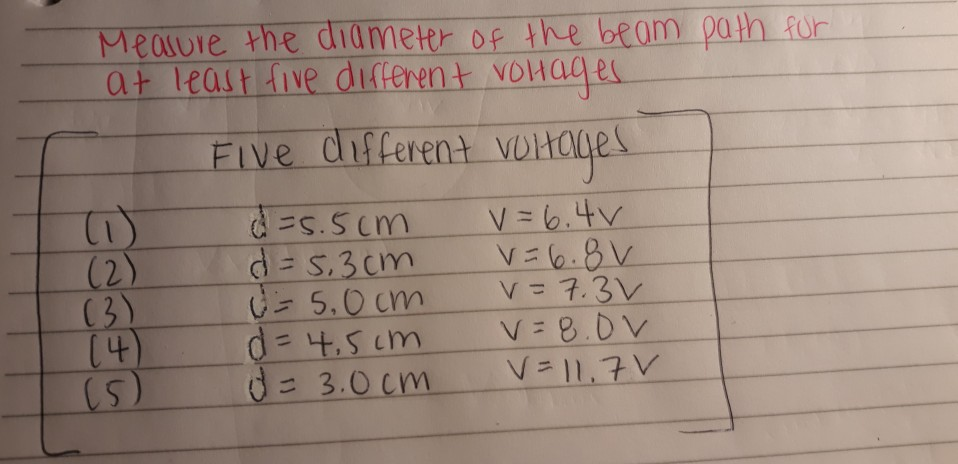 Measure the diameter of the beam path for
at least five different voltages
Five different voltages
(1) d=5.5cm V=6.4V
(2) d=5.3cm V=6.8V
(3) d=5.0cm V=7.3V
(4) d=4.5cm V=8.0V
(5) d=3.0cm V=11.7V